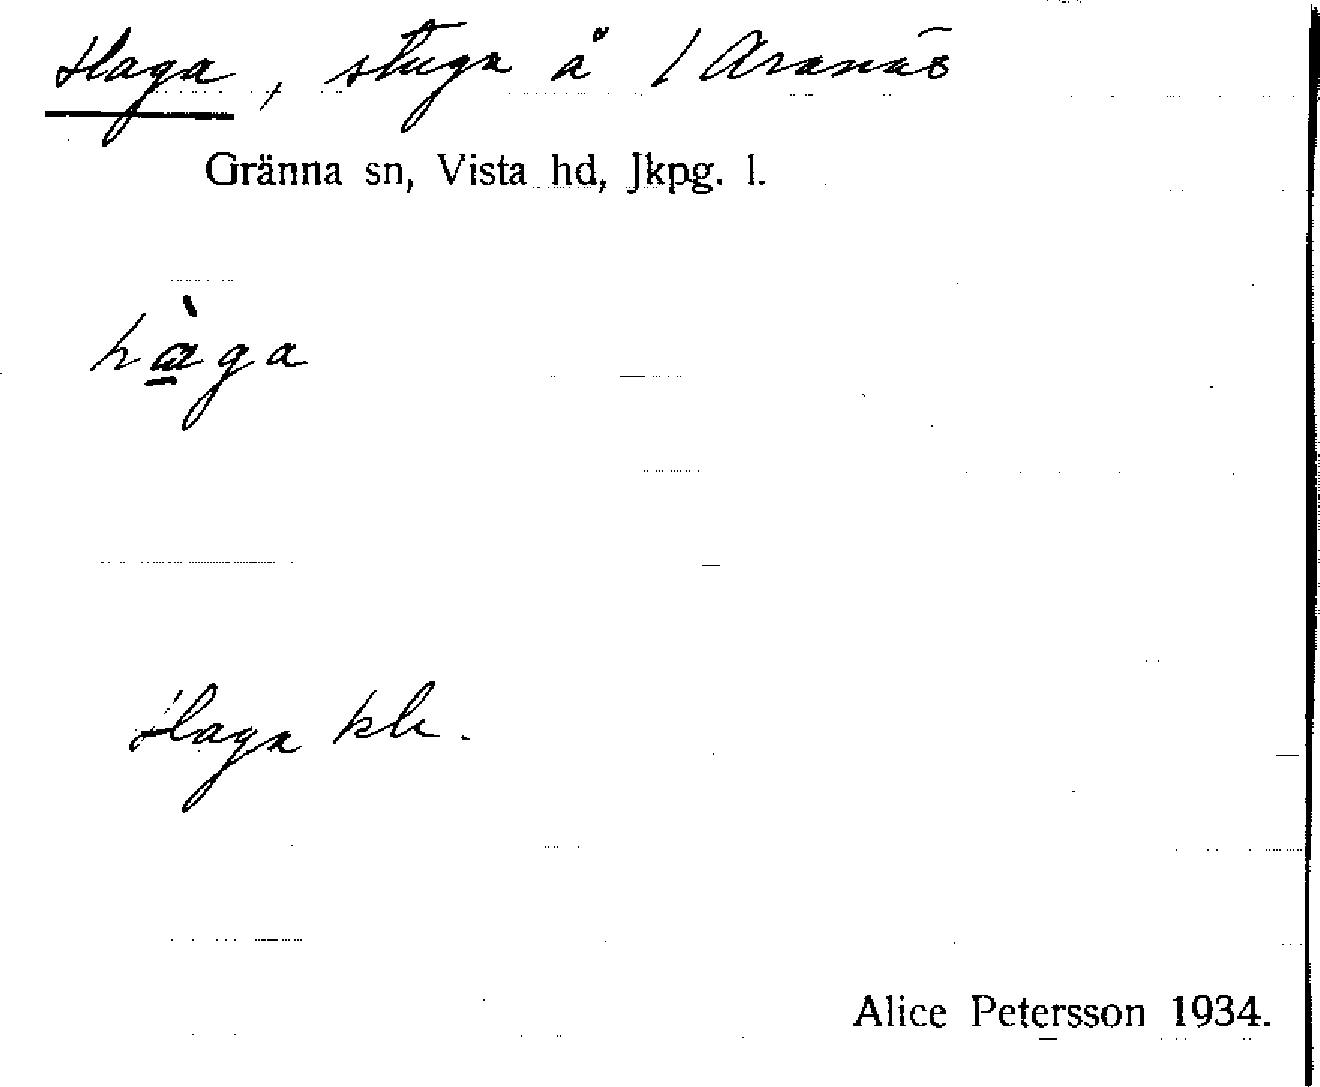 Haga, stuga å 1 Aranäs
Gränna sn, Vista hd, Jkpg. l.
hàga
Haga klr.
Alice Petersson 1934.